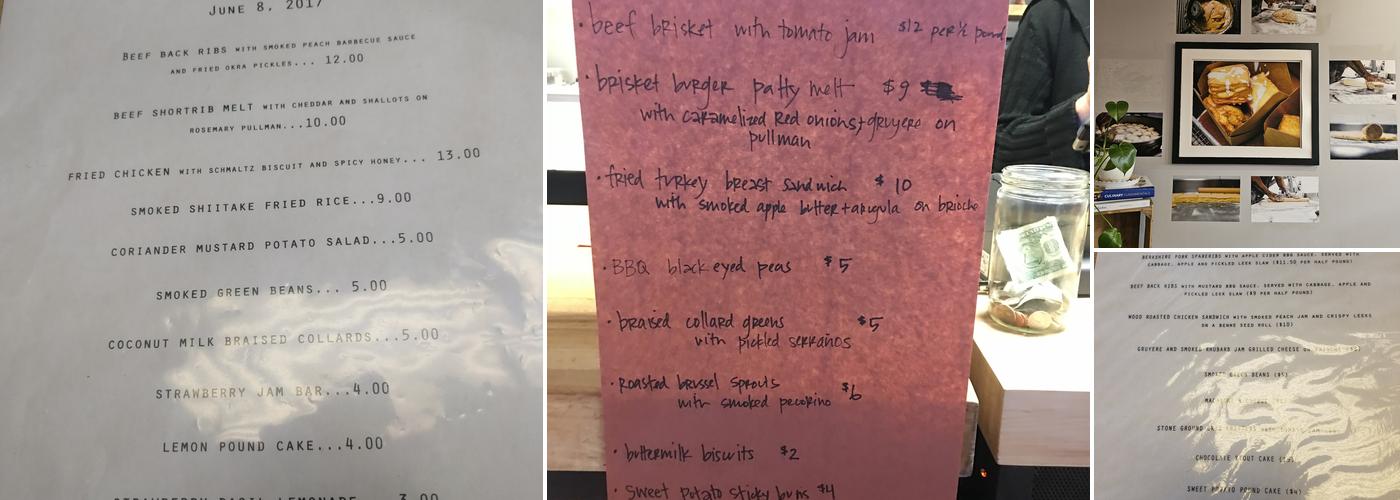 JUNE 8, 2017
BEEF BACK RIBS WITH SMOKED PEACH BARBECUE SAUCE
AND FRIED OKRA PICKLES... 12.00
BEEF SHORTRIB MELT WITH CHEDDAR AND SHALLOTS ON
ROSEMARY PULLMAN...10.00
FRIED CHICKEN WITH SCHMALTZ BISCUIT AND SPICY HONEY... 13.00
SMOKED SHIITAKE FRIED RICE...9.00
CORIANDER MUSTARD POTATO SALAD...5.00
SMOKED GREEN BEANS... 5.00
COCONUT MILK BRAISED COLLARDS...5.00
STRAWBERRY JAM BAR...4.00
LEMON POUND CAKE...4.00
STRAWBERRY BASIL LEMONADE... 3.00
· beef brisket with tomato jam $12 per ½ pound
· brisket burger patty melt $9
with caramelized Red onions + gruyere on
pullman
· fried turkey breast sandwich $10
with smoked apple butter + arugula on brioche
· BBQ black eyed peas $5
· braised collard greens $5
with pickled serranos
· Roasted brussel sprouts $6
with smoked pecorino
· buttermilk biscuits $2
· sweet potato sticky buns $4
CULINARY
BERKSHIRE PORK SPARERIBS WITH APPLE CIDER BBQ SAUCE. SERVED WITH
CABBAGE, APPLE AND PICKLED LEEK SLAW ($11.50 PER HALF POUND)
BEEF BACK RIBS WITH MUSTARD BBQ SAUCE. SERVED WITH CABBAGE, APPLE AND
PICKLED LEEK SLAW ($9 PER HALF POUND)
WOOD ROASTED CHICKEN SANDWICH WITH SMOKED PEACH JAM AND CRISPY LEEKS
ON A BENNE SEED ROLL ($10)
GRUYERE AND SMOKED RHUBARB JAM GRILLED CHEESE ON
SMOKED GREEN BEANS ($5)
STONE GROUND
CHOCOLATE STOUT CAKE
SWEET POTATO POUND CAKE ($4)